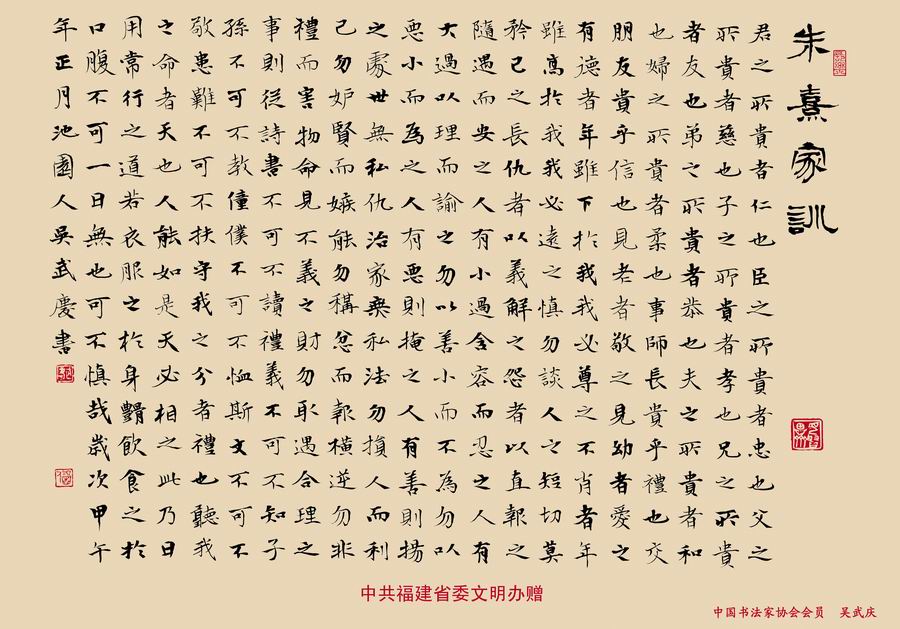 朱熹家訓
君之所貴者仁也臣之所貴者忠也父之
所貴者慈也子之所貴者孝也兄之所貴
者友也弟之所貴者恭也夫之所貴者和
也婦之所貴者柔也事師長貴乎禮也交
朋友貴乎信也見老者敬之見幼者愛之
有德者年雖下於我我必尊之不肖者年
雖高於我我必遠之慎勿談人之短切莫
矜己之長仇者以義解之怨者以直報之
隨遇而安之人有小過含容而忍之人有
大過以理而諭之勿以善小而不為勿以
惡小而為之人有惡則掩之人有善則揚
之處世無私仇治家無私法勿損人而利
己勿妒賢而嫉能勿稱忿而報橫逆勿非
禮而害物命見不義之財勿取遇合理之
事則從詩書不可不讀禮義不可不知子
孫不可不教僮僕不可不恤斯文不可不
敬患難不可不扶守我之分者禮也聽我
之命者天也人能如是天必相之此乃日
用常行之道若衣服之於身體飲食之於
口腹不可一日無也可不慎哉歲次甲午
年正月池園人吳武慶書
中共福建省委文明办赠
中国书法家协会会员 吴武庆